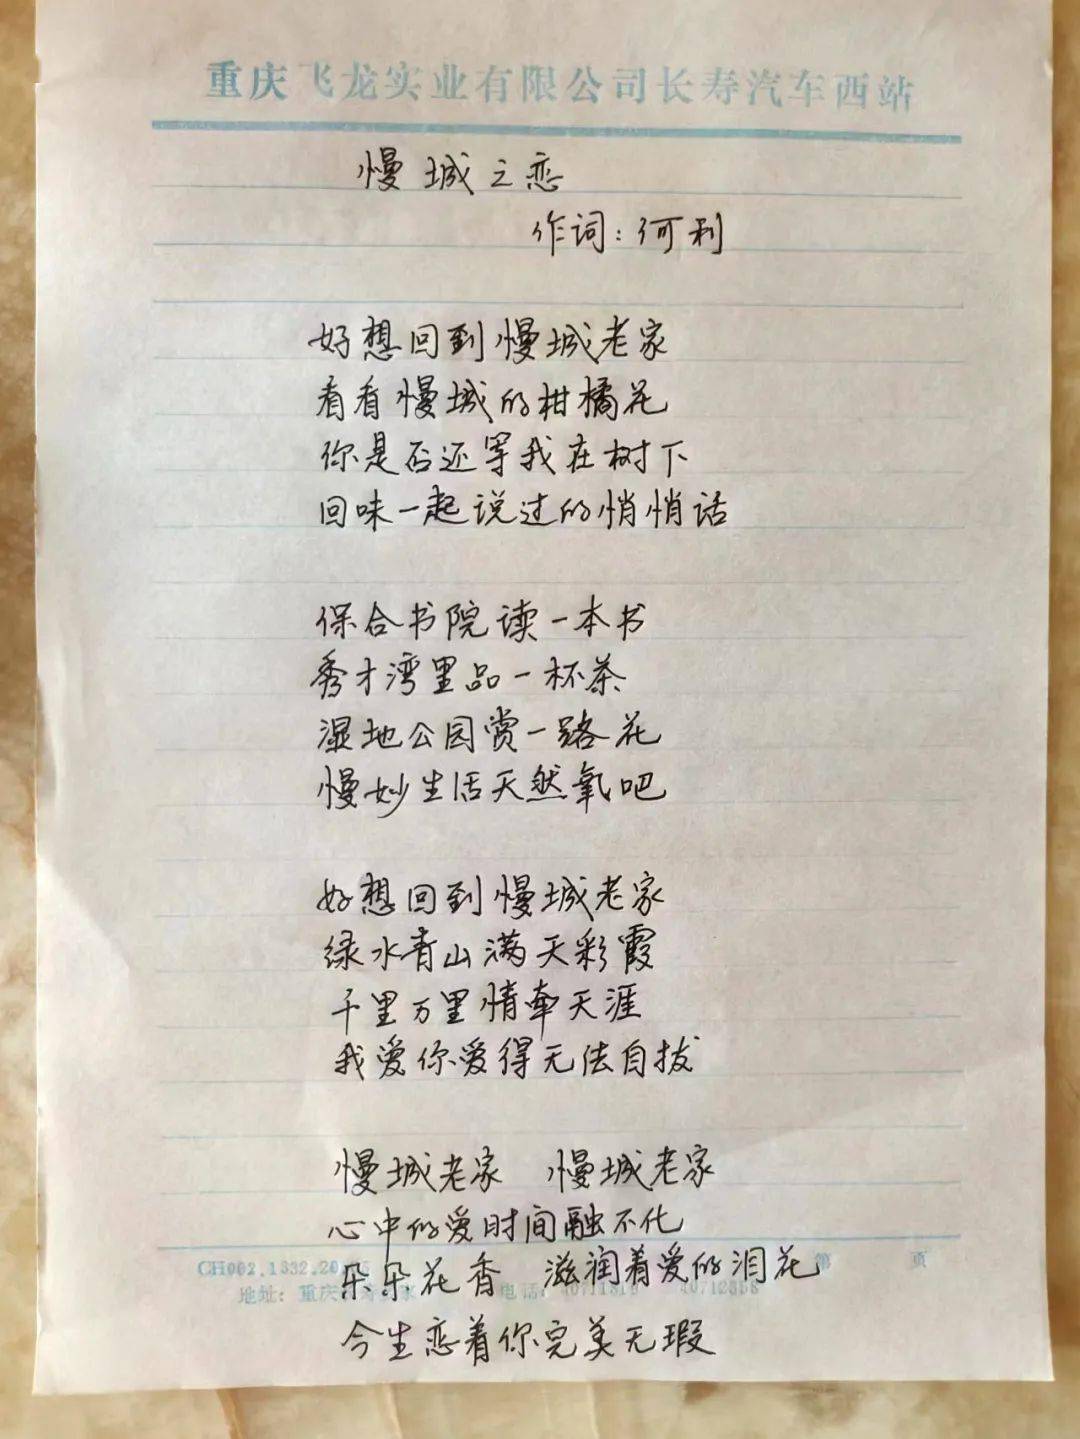 重庆飞龙实业有限公司长寿汽车西站
慢城之恋
作词：何利
好想回到慢城老家
看看慢城的柑橘花
你是否还等我在树下
回味一起说过的悄悄话
保合书院读一本书
秀才湾里品一杯茶
湿地公园赏一路花
慢妙生活天然氧吧
好想回到慢城老家
绿水青山满天彩霞
千里万里情牵天涯
我爱你爱得无法自拔
慢城老家 慢城老家
心中的爱时间融不化
CH002.1332.20 第 页
朵朵花香 滋润着爱的泪花
地址：重庆 电话：
今生恋着你完美无瑕